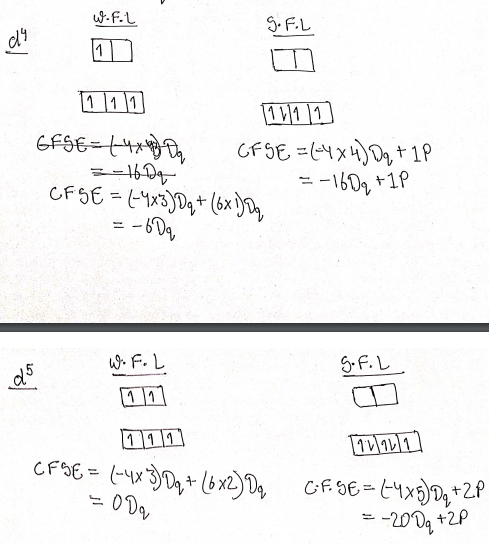 d⁴
W.F.L
1
1 1 1
CFSE = (-4×4)Dq
= -16Dq
CFSE = (-4×3)Dq + (6×1)Dq
= -6Dq
S.F.L
1⇂ 1 1
CFSE = (-4×4)Dq + 1P
= -16Dq + 1P
d⁵
W.F.L
1 1
1 1 1
CFSE = (-4×3)Dq + (6×2)Dq
= 0Dq
S.F.L
1⇂ 1⇂ 1
C.F.SE = (-4×5)Dq + 2P
= -20Dq + 2P